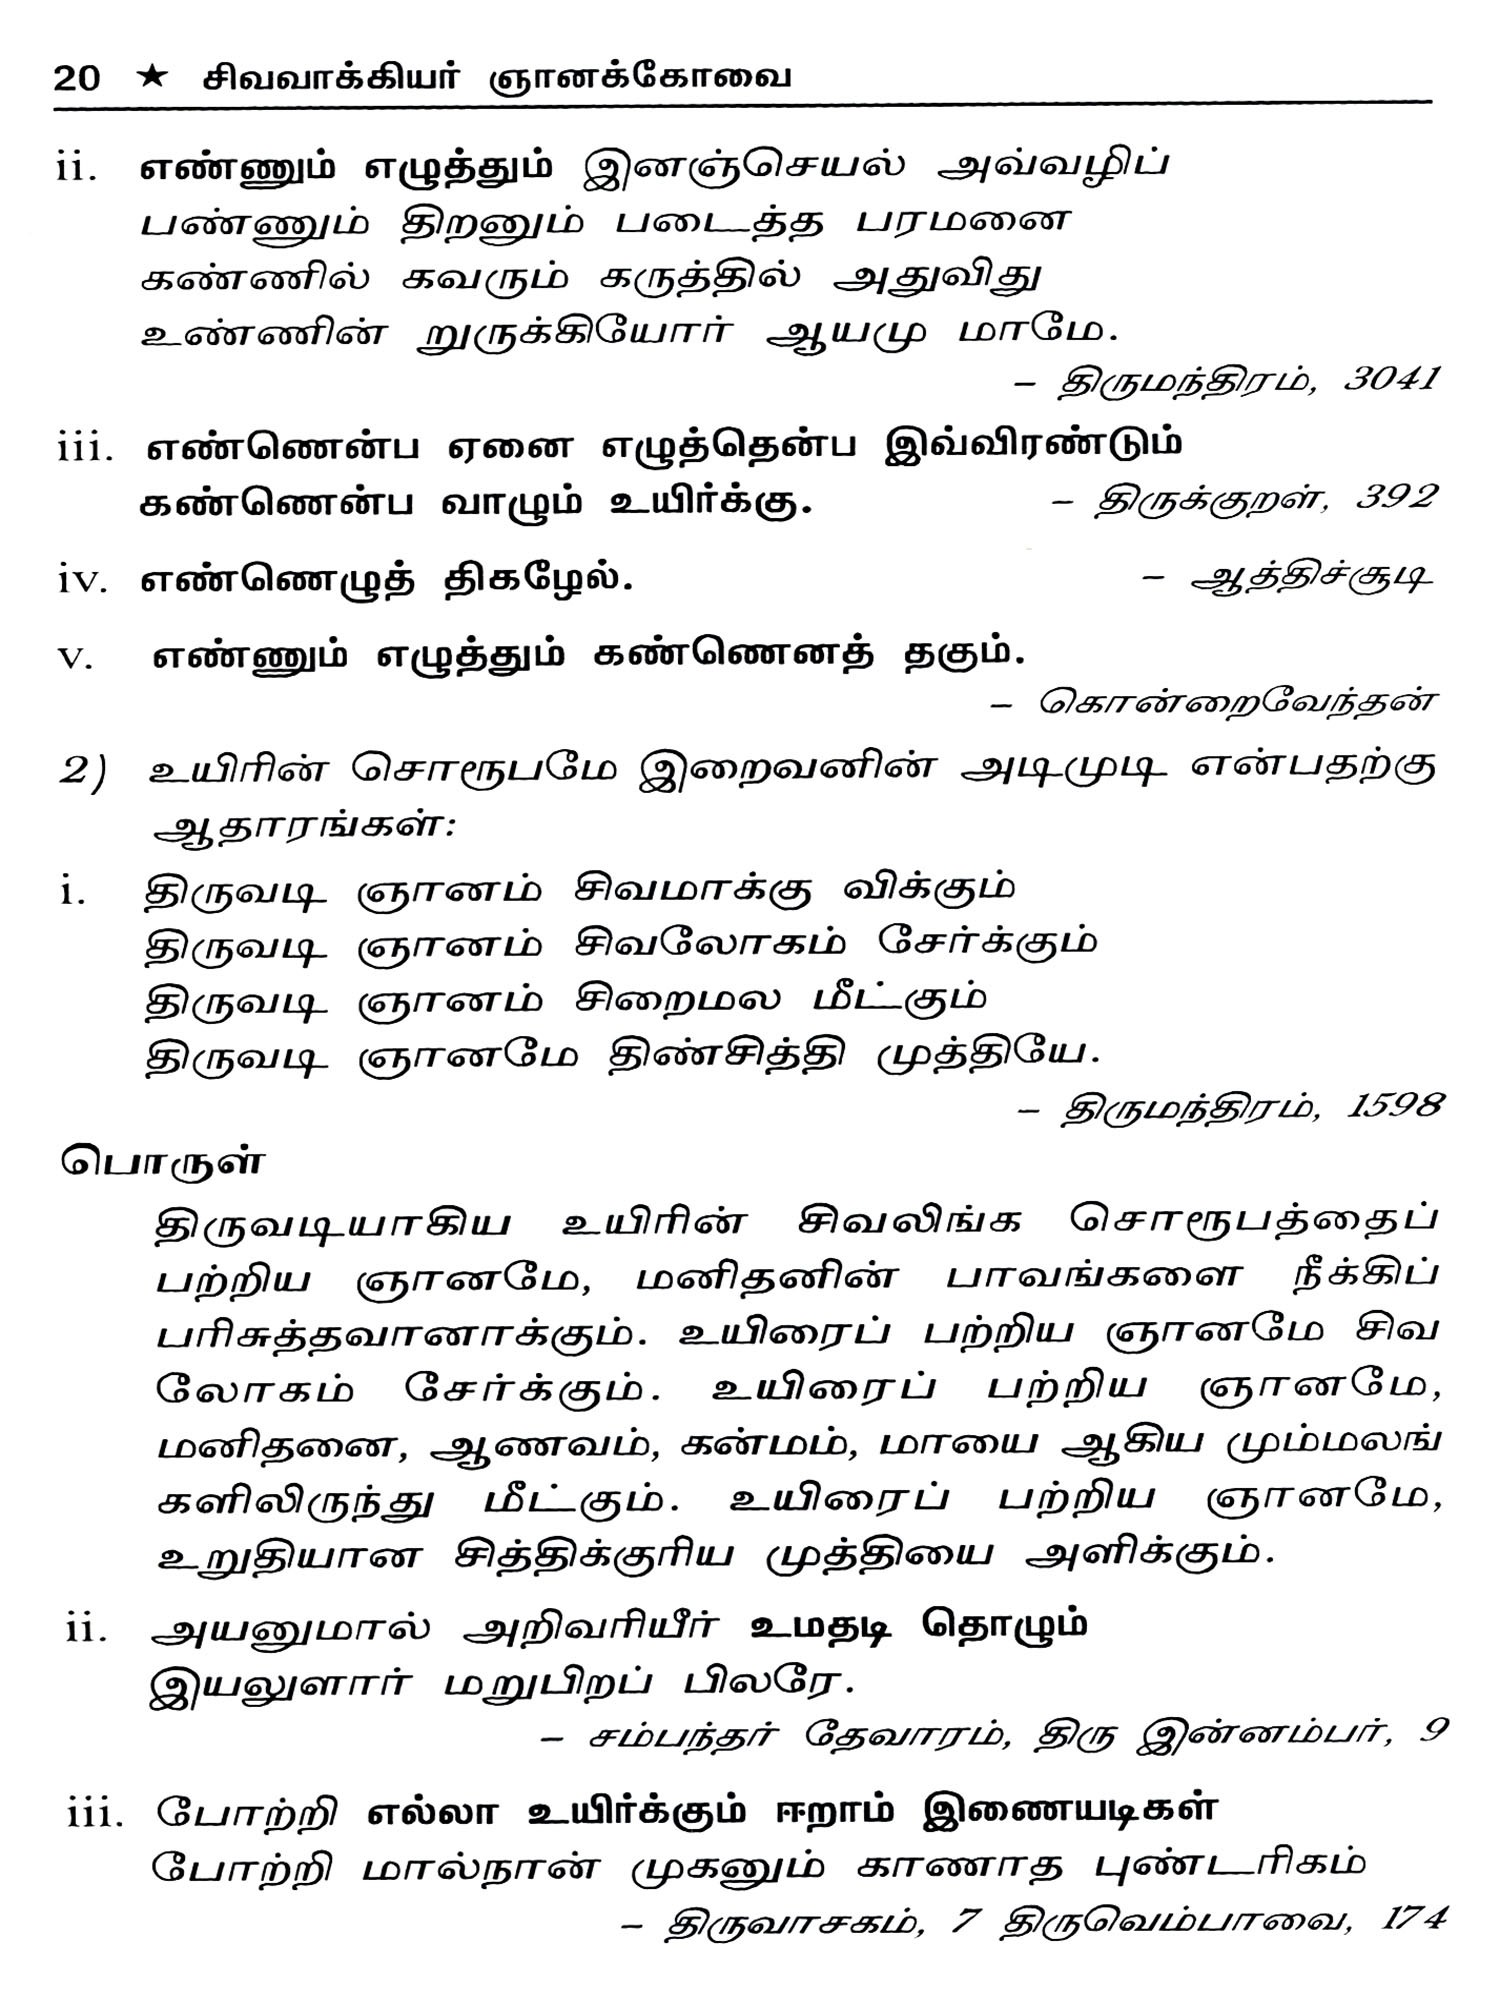 20 ★ சிவவாக்கியர் ஞானக்கோவை
ii. எண்ணும் எழுத்தும் இனஞ்செயல் அவ்வழிப்
பண்ணும் திறனும் படைத்த பரமனை
கண்ணில் கவரும் கருத்தில் அதுவிது
உண்ணின் றுருக்கியோர் ஆயமு மாமே.
– திருமந்திரம், 3041
iii. எண்ணென்ப ஏனை எழுத்தென்ப இவ்விரண்டும்
கண்ணென்ப வாழும் உயிர்க்கு. – திருக்குறள், 392
iv. எண்ணெழுத் திகழேல். – ஆத்திச்சூடி
v. எண்ணும் எழுத்தும் கண்ணெனத் தகும்.
– கொன்றைவேந்தன்
2) உயிரின் சொரூபமே இறைவனின் அடிமுடி என்பதற்கு
ஆதாரங்கள்:
i. திருவடி ஞானம் சிவமாக்கு விக்கும்
திருவடி ஞானம் சிவலோகம் சேர்க்கும்
திருவடி ஞானம் சிறைமல மீட்கும்
திருவடி ஞானமே திண்சித்தி முத்தியே.
– திருமந்திரம், 1598
பொருள்
திருவடியாகிய உயிரின் சிவலிங்க சொரூபத்தைப்
பற்றிய ஞானமே, மனிதனின் பாவங்களை நீக்கிப்
பரிசுத்தவானாக்கும். உயிரைப் பற்றிய ஞானமே சிவ
லோகம் சேர்க்கும். உயிரைப் பற்றிய ஞானமே,
மனிதனை, ஆணவம், கன்மம், மாயை ஆகிய மும்மலங்
களிலிருந்து மீட்கும். உயிரைப் பற்றிய ஞானமே,
உறுதியான சித்திக்குரிய முத்தியை அளிக்கும்.
ii. அயனுமால் அறிவரியீர் உமதடி தொழும்
இயலுளார் மறுபிறப் பிலரே.
– சம்பந்தர் தேவாரம், திரு இன்னம்பர், 9
iii. போற்றி எல்லா உயிர்க்கும் ஈறாம் இணையடிகள்
போற்றி மால்நான் முகனும் காணாத புண்டரிகம்
– திருவாசகம், 7 திருவெம்பாவை, 174